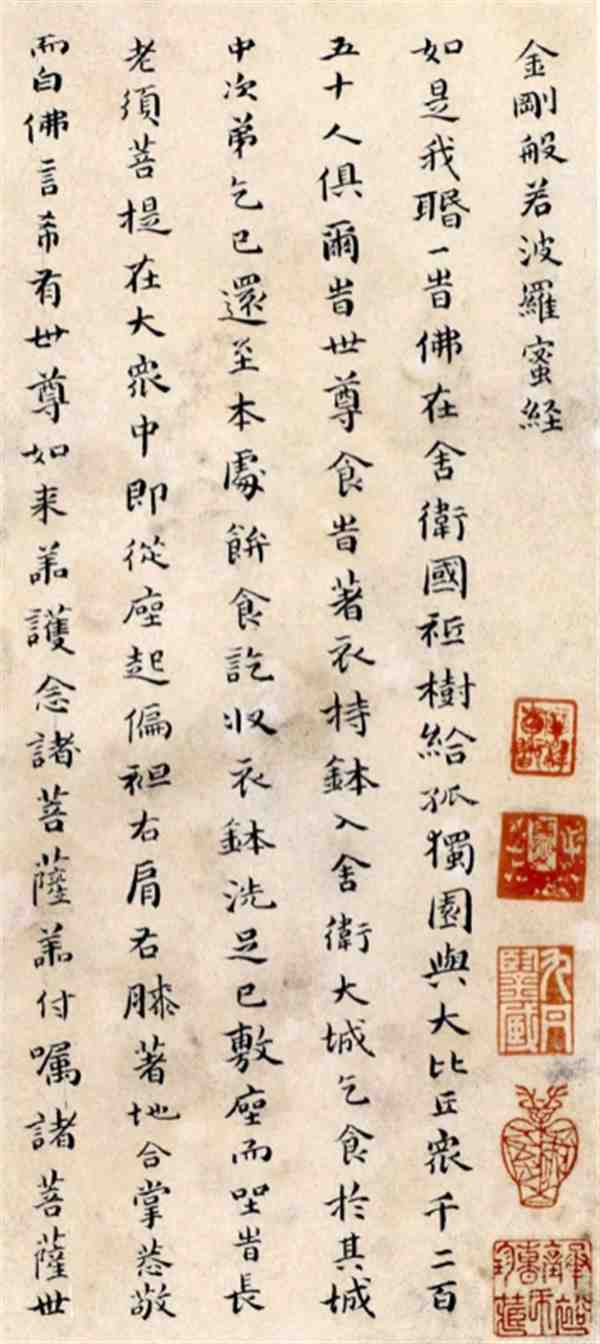 金剛般若波羅蜜経
如是我䎽一旹佛在舍衛國祇樹給孤獨園與大比丘衆千二百
五十人俱爾旹世尊食旹著衣持鉢入舍衛大城乞食於其城
中次弟乞已還至本處餅食訖収衣鉢洗足已敷座而坐旹長
老須菩提在大衆中即從座起偏袒右肩右膝著地合掌恭敬
而白佛言希有世尊如来善護念諸菩薩善付嘱諸菩薩世